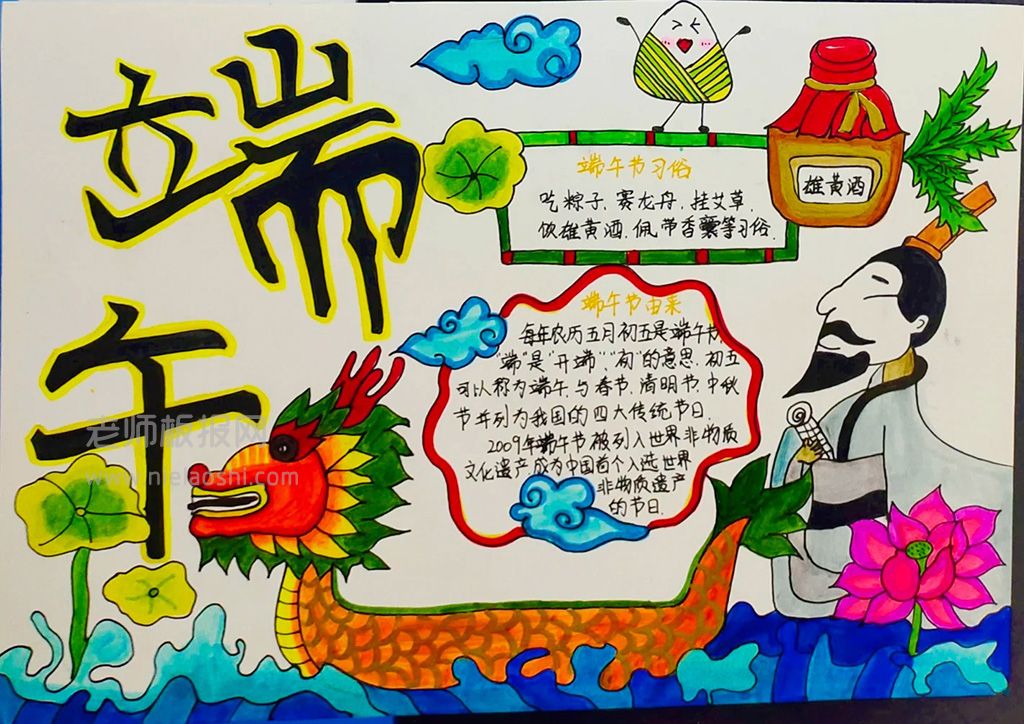 端午
端午节习俗
吃粽子、赛龙舟、挂艾草、
饮雄黄酒、佩带香囊等习俗.
雄黄酒
端午节由来
每年农历五月初五是端午节,
"端"是"开端"、"初"的意思.初五
可以称为端午.与春节、清明节、中秋
节并列为我国的四大传统节日.
2009年端午节被列入世界非物质
文化遗产成为中国首个入选世界
非物质遗产
的节日.
老师板报网
www.nielaoshi.com